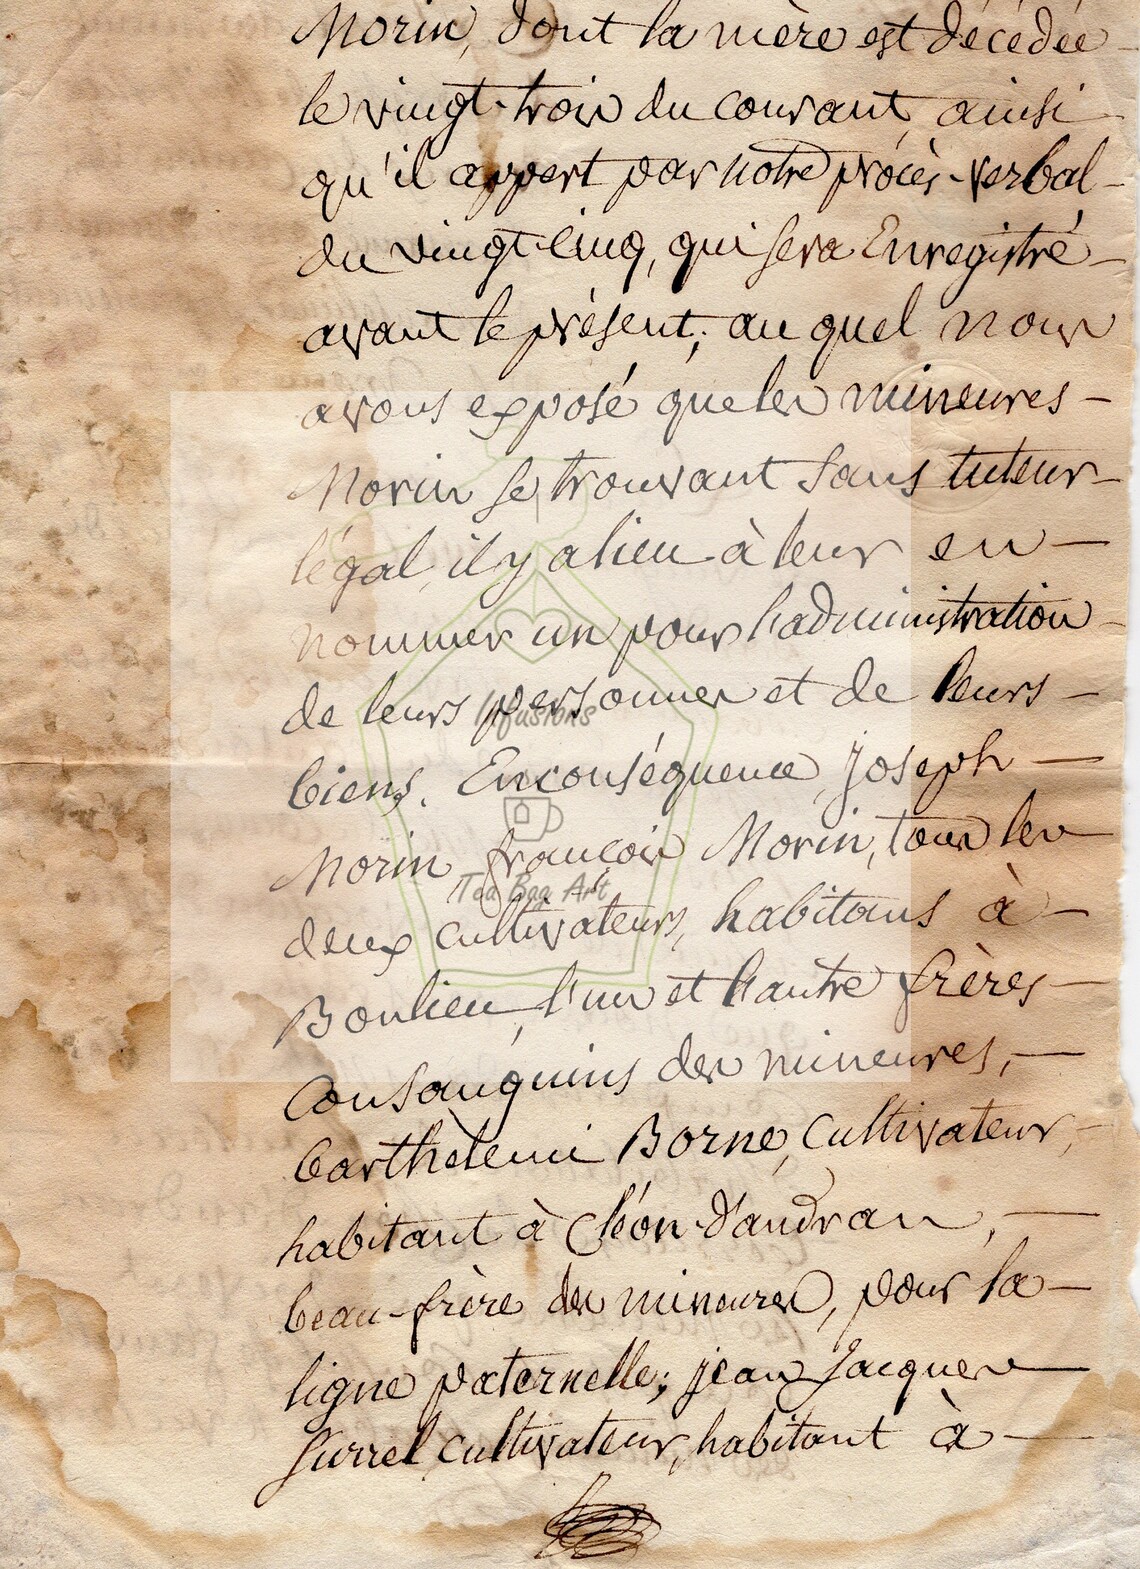 Morin, dont la mère est décédée
le vingt-trois du courant, ainsi
qu'il appert par notre procès-verbal
du vingt-cinq, qui sera Enregistré
avant le présent; au quel nous
avons exposé que les mineures
Morin se trouvant sans tuteur
légal, il y a lieu à leur en
nommer un pour l'administration
de leurs personnes et de leurs
Infusions
biens. En conséquence, joseph
Morin, françois Morin, tous les
Tea Bag Art
deux cultivateurs, habitans à
Boulieu, l'un et l'autre frères
Consanguins des mineures,
barthèlemi Borne, Cultivateur,
habitant à Cléon-d'andran,
beau-frère des mineures, pour la
ligne paternelle; jean Jacques
Surrel, cultivateur, habitant à